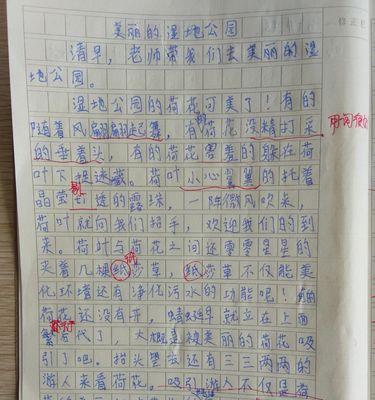 美丽的湿地公园
清早，老师带我们去美丽的湿
地公园。
湿地公园的荷花可美了！有的
随着风翩翩起舞，有的荷花没精打采
的垂着头，有的荷花害羞的躲在荷
叶下捉迷藏。荷叶小心翼翼的托着
晶莹剔透的露珠，一阵微风吹来，
荷叶就向我们招手，欢迎我们的到
来。荷叶与荷花之间还零零星星的
夹着几棵纸莎草，纸莎草不仅能美
化环境还有净化污水的功能呢！有的
荷花还没有开，蜻蜓早就立在上面
了，大概是被美丽的荷花吸
引了吧。抬头望去还有三三两两的
游人来看荷花。吸引游人不仅是荷